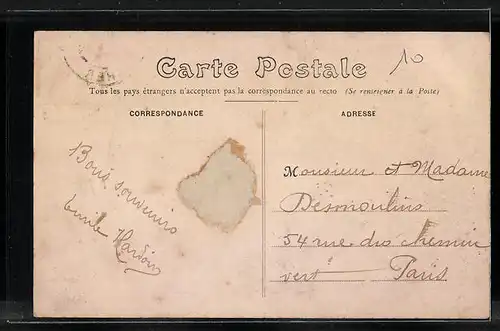 10
Carte Postale
Tous les pays étrangers n'acceptent pas la correspondance au recto (Se renseigner à la Poste)
CORRESPONDANCE
ADRESSE
Bons souvenirs
Emile
Monsieur et Madame
Desmoulins
54 rue du chemin
vert Paris